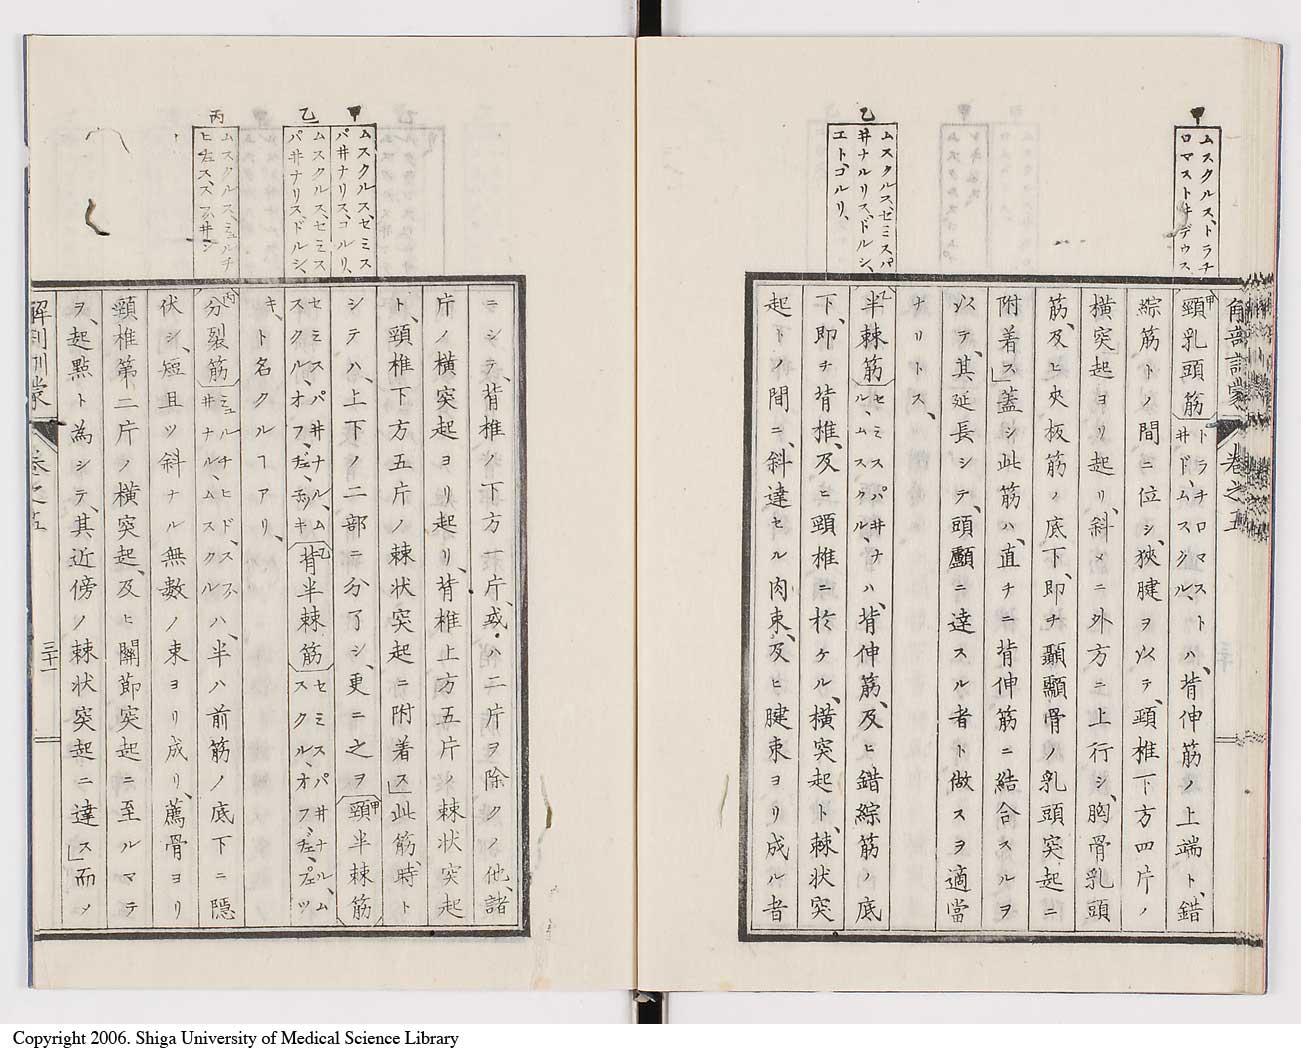 甲
ムスクルス、トラチ
ロマストヰデウス
乙
ムスクルス、セミスパ
ヰナルリス、ドルシ、
エト、ゴルリ、
解剖訓蒙 卷之五
頸乳頭筋 トラチロマスト
ヰド、ムスクル、ハ、背伸筋ノ上端ト、錯
綜筋トノ間ニ位シ、狹腱ヲ以テ、頸椎下方四片ノ
橫突起ヨリ起リ、斜メニ外方ニ上行シ、胸骨乳頭
筋、及ヒ夾板筋ノ底下、即チ顳顬骨ノ乳頭突起ニ
附着ス」蓋シ此筋ハ、直チニ背伸筋ニ結合スルヲ
以テ、其延長シテ、頭顱ニ達スル者ト做スヲ適當
ナリトス、
半棘筋 セミスパヰナ
ルムスクル、ハ、背伸筋、及ヒ錯綜筋ノ底
下、即チ背椎、及ヒ頸椎ニ於ケル、橫突起ト、棘狀突
起トノ間ニ、斜達セル肉束、及ヒ腱束ヨリ成ル者
甲
ムスクルス、セミス
パヰナリス、コルリ、
乙
ムスクルス、セミス
パヰナリス、ドルシ、
丙
ムスクルス、ミュルチ
ニシテ、背椎ノ下方一片、或ハ二片ヲ除クノ他、諸
片ノ橫突起ヨリ起リ、背椎上方五片ノ棘狀突起
ト、頸椎下方五片ノ棘狀突起ニ附着ス」此筋、時ト
シテハ、上下ノ二部ニ分了シ、更ニ之ヲ 甲 頸半棘筋
セミスパヰナル、ム
スクル、オフ、ゼ、子ッキ 乙 背半棘筋 セミスパヰナル、ム
スクル、オフ、ゼ、ベッ
キ、ト名クルヿアリ、
丙 分裂筋 ミュルチヒド、スパ
ヰナル、ムスクル ハ、半ハ前筋ノ底下ニ隱
伏シ、短且ツ斜ナル無數ノ束ヨリ成リ、薦骨ヨリ
頸椎第二片ノ橫突起、及ヒ關節突起ニ至ルマテ
ヲ、起點ト為シテ、其近傍ノ棘狀突起ニ達ス」而メ
解剖訓蒙 卷之五 三十一
Copyright 2006. Shiga University of Medical Science Library